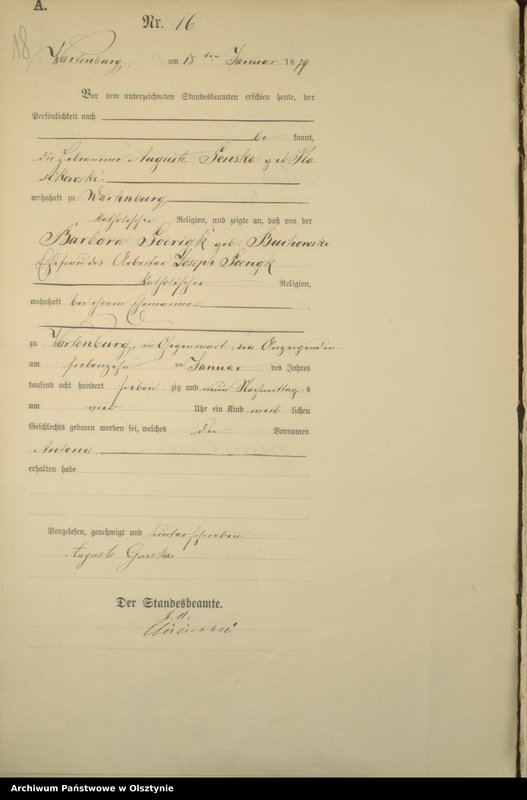 A.
Nr. 16
18
Wartenburg, am 18 ten Januar 1879.
Vor dem unterzeichneten Standesbeamten erschien heute, der
Persönlichkeit nach
be kannt,
die Hebeamme Auguste
geb.
wohnhaft zu Wartenburg
katholischer Religion, und zeigte an, daß von der
Barbara Poerigk geb.
Ehefrau des Arbeiter Joseph Poerigk
katholischer Religion,
wohnhaft bei ihrem Ehemanne
zu Wartenburg, in Gegenwart der Anzeigender
am siebenzehn ten Januar des Jahres
tausend acht hundert sieben zig und neun Nachmittag s
um vier Uhr ein Kind weib lichen
Geschlechts geboren worden sei, welches den Vornamen
erhalten habe
Vorgelesen, genehmigt und unterschrieben
Auguste
Der Standesbeamte.
Archiwum Państwowe w Olsztynie